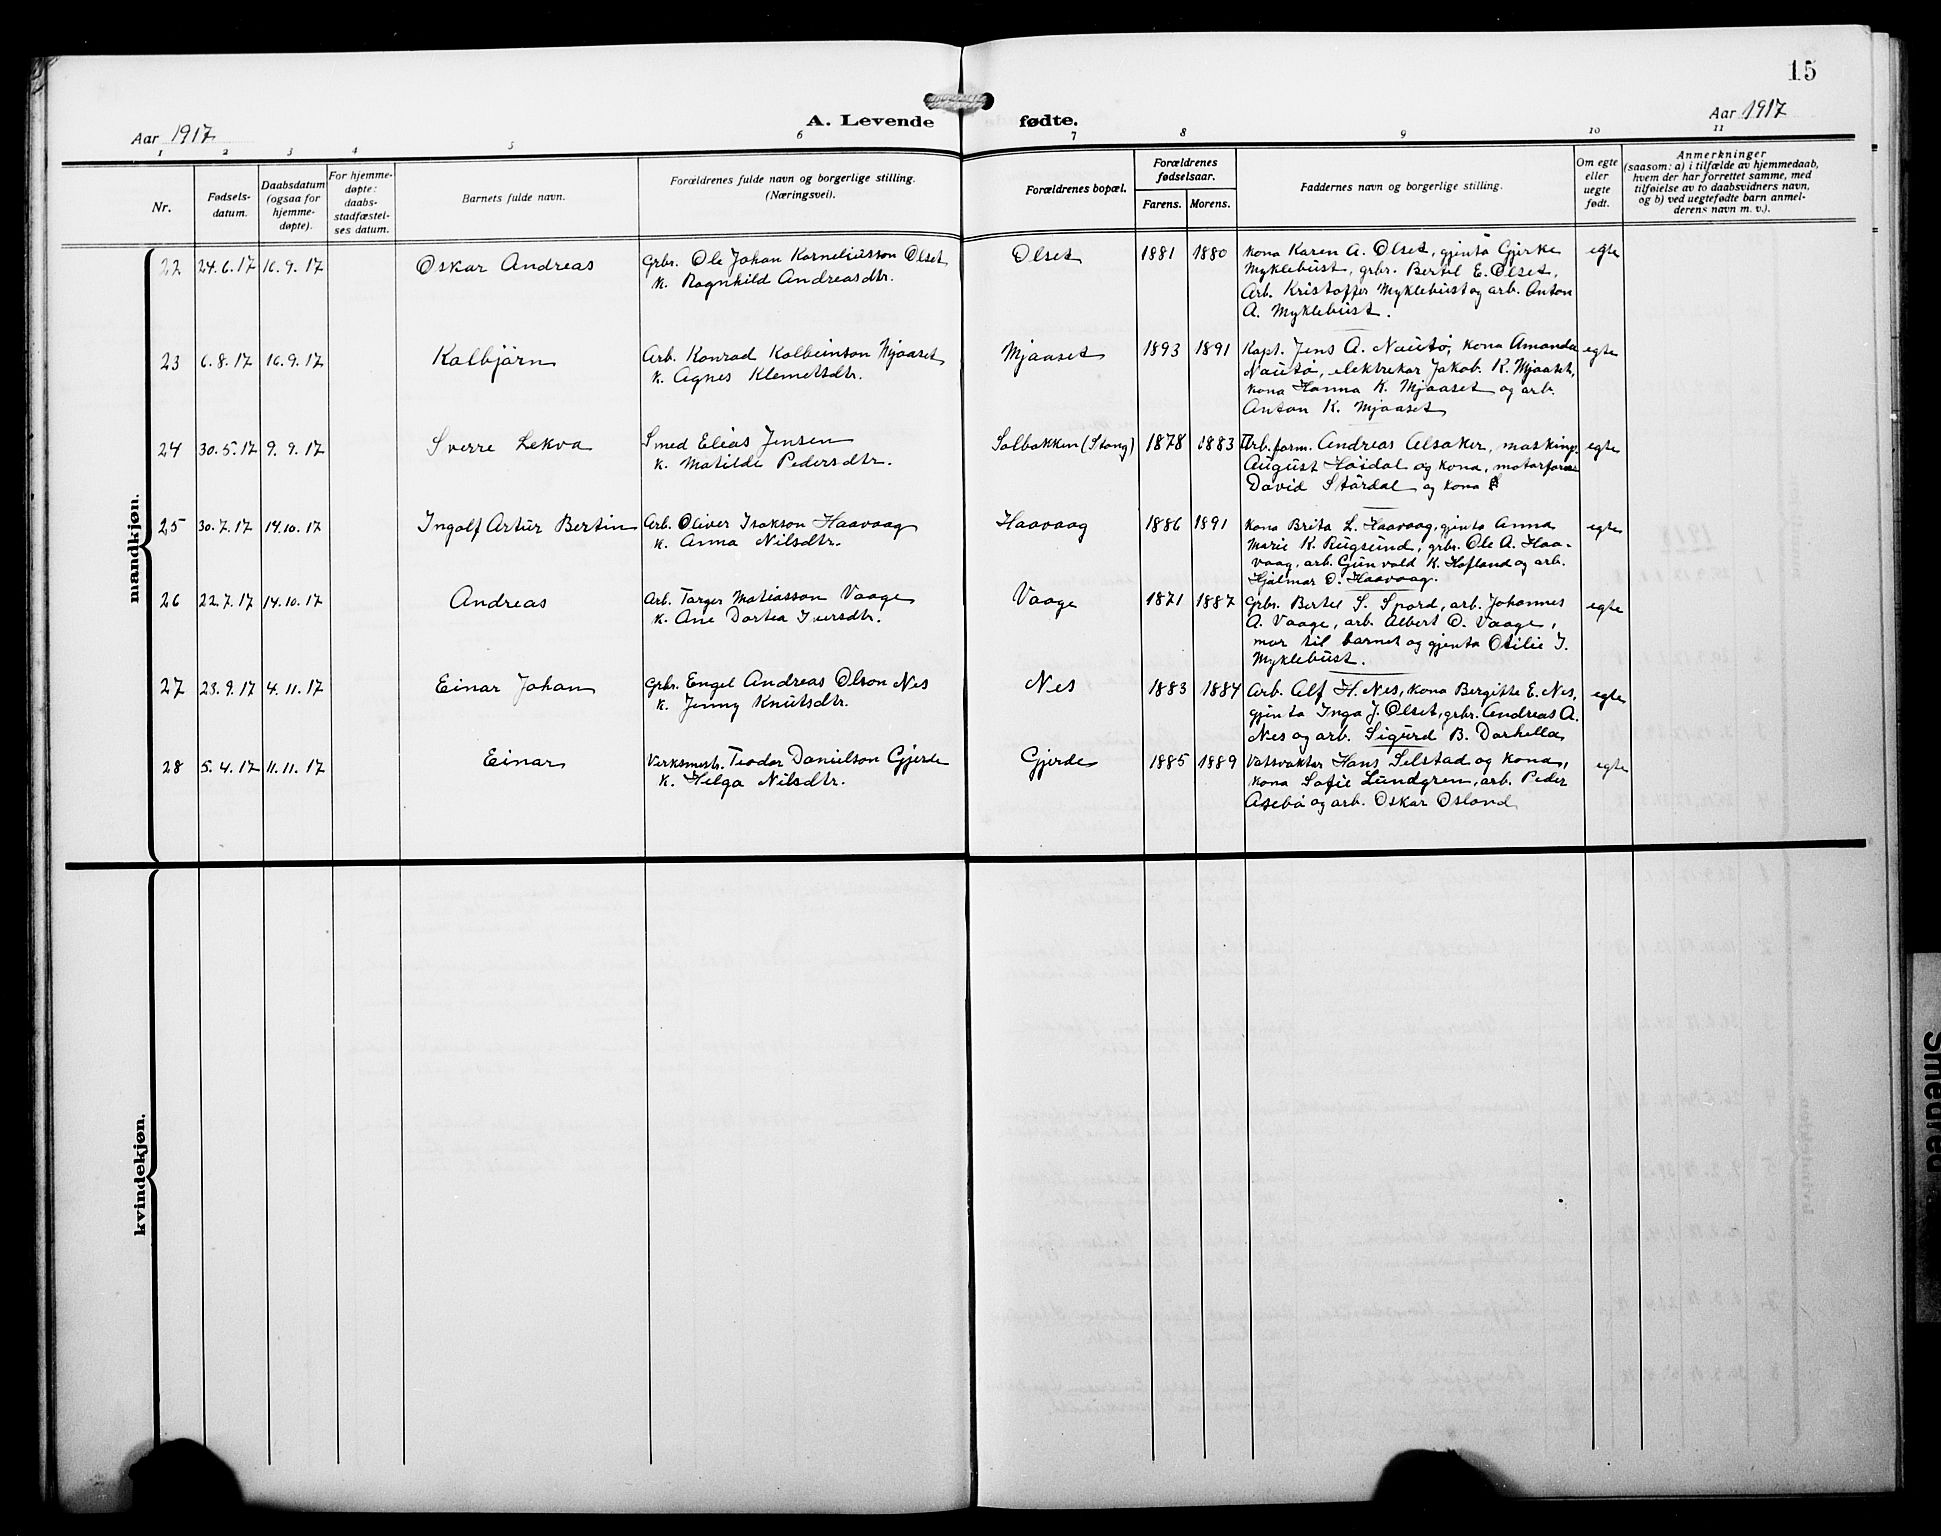 15
Aar 1917
A. Levende fødte.
Aar 1917
1 2 3 4 5 6 7 8 9 10 11
Nr.
Fødsels-
datum.
Daabsdatum
(ogsaa for
hjemme-
døpte).
For hjemme-
døpte:
daabs-
stadfæstel-
ses datum.
Barnets fulde navn.
Forældrenes fulde navn og borgerlige stilling.
(Næringsvei).
Forældrenes bopæl.
Forældrenes
fødselsaar.
Farens. Morens.
Faddernes navn og borgerlige stilling.
Om egte
eller
uegte
født.
Anmerkninger
(saasom: a) i tilfælde av hjemmedaab,
hvem der har forrettet samme, med
tilføielse av to daabsvidners navn,
og b) ved uegtefødte barn anmel-
derens navn m. v.).
mandkjøn.
22 24.6.17 16.9.17 Oskar Andreas
Grbr. Ole Johan Korneliusson Olset
k. Ragnhild Andreasdtr.
Olset 1881 1880
Kona Karen A. Olset, gjenta Gjirke
Myklebust, grbr. Bertel E. Olset,
Arb. Kristoffer Myklebust og arb. Anton
A. Myklebust.
egte
23 6.8.17 16.9.17 Kolbjørn
Arb. Konrad Kolbeinson Mjaaset
k. Agnes Klemetsdtr.
Mjaaset 1893 1891
Kapt. Jens A. Nautø, kona Amanda
Nautø, elektrekar Jakob K. Mjaaset,
kona Hanna K. Mjaaset og arb.
Anton K. Mjaaset
egte
24 30.5.17 9.9.17 Sverre Lekva
Smed Elias Jensen
k. Matilde Pedersdtr.
Solbakken (Stong) 1878 1883
Arb.form. Andreas Alsaker, masking.
August Høidal og kona, motorfører
David Størdal og kona
egte
25 30.7.17 14.10.17 Ingolf Artur Bertin
Arb. Oliver Isakson Haavaag
k. Anna Nilsdtr.
Haavaag 1886 1891
Kona Brita L. Haavaag, gjenta Anna
Marie K. Rugsund, grbr. Ole A. Haa-
vaag, arb. Gunvald K. Hofland og arb.
Hjalmar O. Haavaag.
egte
26 22.7.17 14.10.17 Andreas
Arb. Targer Matiasson Vaage
k. Ane Dortea Iversdtr.
Vaage 1871 1887
Grbr. Bertel S. Spord, arb. Johannes
A. Vaage, arb. Albert O. Vaage,
mor til barnet og gjenta Otilie I.
Myklebust.
egte
27 23.9.17 4.11.17 Einar Johan
Grbr. Engel Andreas Olson Nes
k. Jenny Knutsdtr.
Nes 1883 1884
Arb. Alf H. Nes, kona Bergitte E. Nes,
gjenta Inga J. Olset, grbr. Andreas A.
Nes og arb. Sigurd B. Dorhella
egte
28 5.4.17 11.11.17 Einar
Verksmestr. Teodor Danielson Gjerde
k. Helga Nilsdtr.
Gjerde 1885 1889
Vatsvaktar Hans Selstad og kona,
kona Sofie Lundgren, arb. Peder
Asebø og arb. Oskar Osland
egte
kvindekjøn.